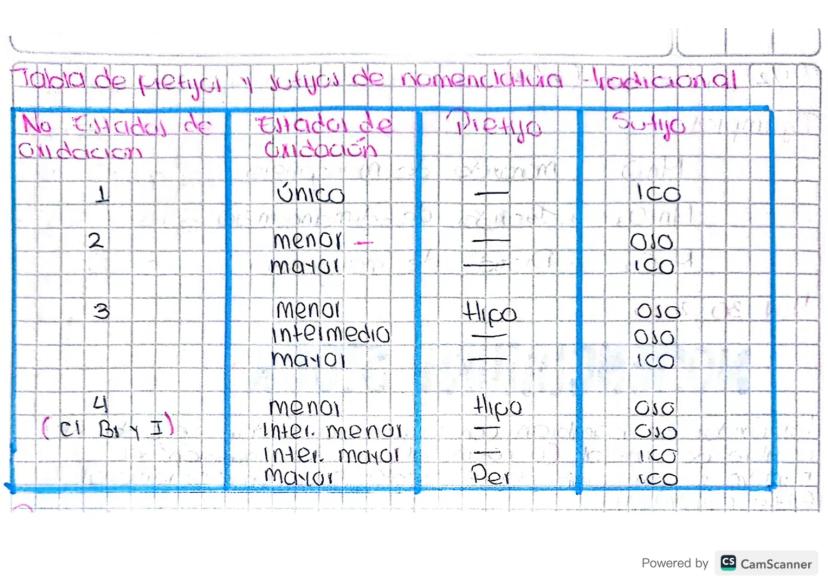 Tabla de prefijos y sufijos de nomenclatura tradicional
No Estados de oxidación
Estados de oxidación
Prefijo
Sufijo
1 único — ico
2 menor — oso
mayor — ico
3 menor Hipo oso
intermedio — oso
mayor — ico
4 menor Hipo oso
(Cl Br y I) Inter. menor — oso
Inter. mayor — ico
mayor Per ico
Powered by CS CamScanner